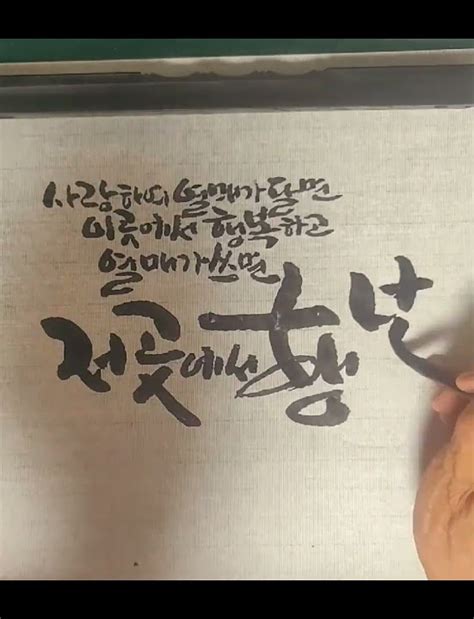 사랑하되 열매가 달면
이곳에서 행복하고
열매가 쓰면
저곳에서 행